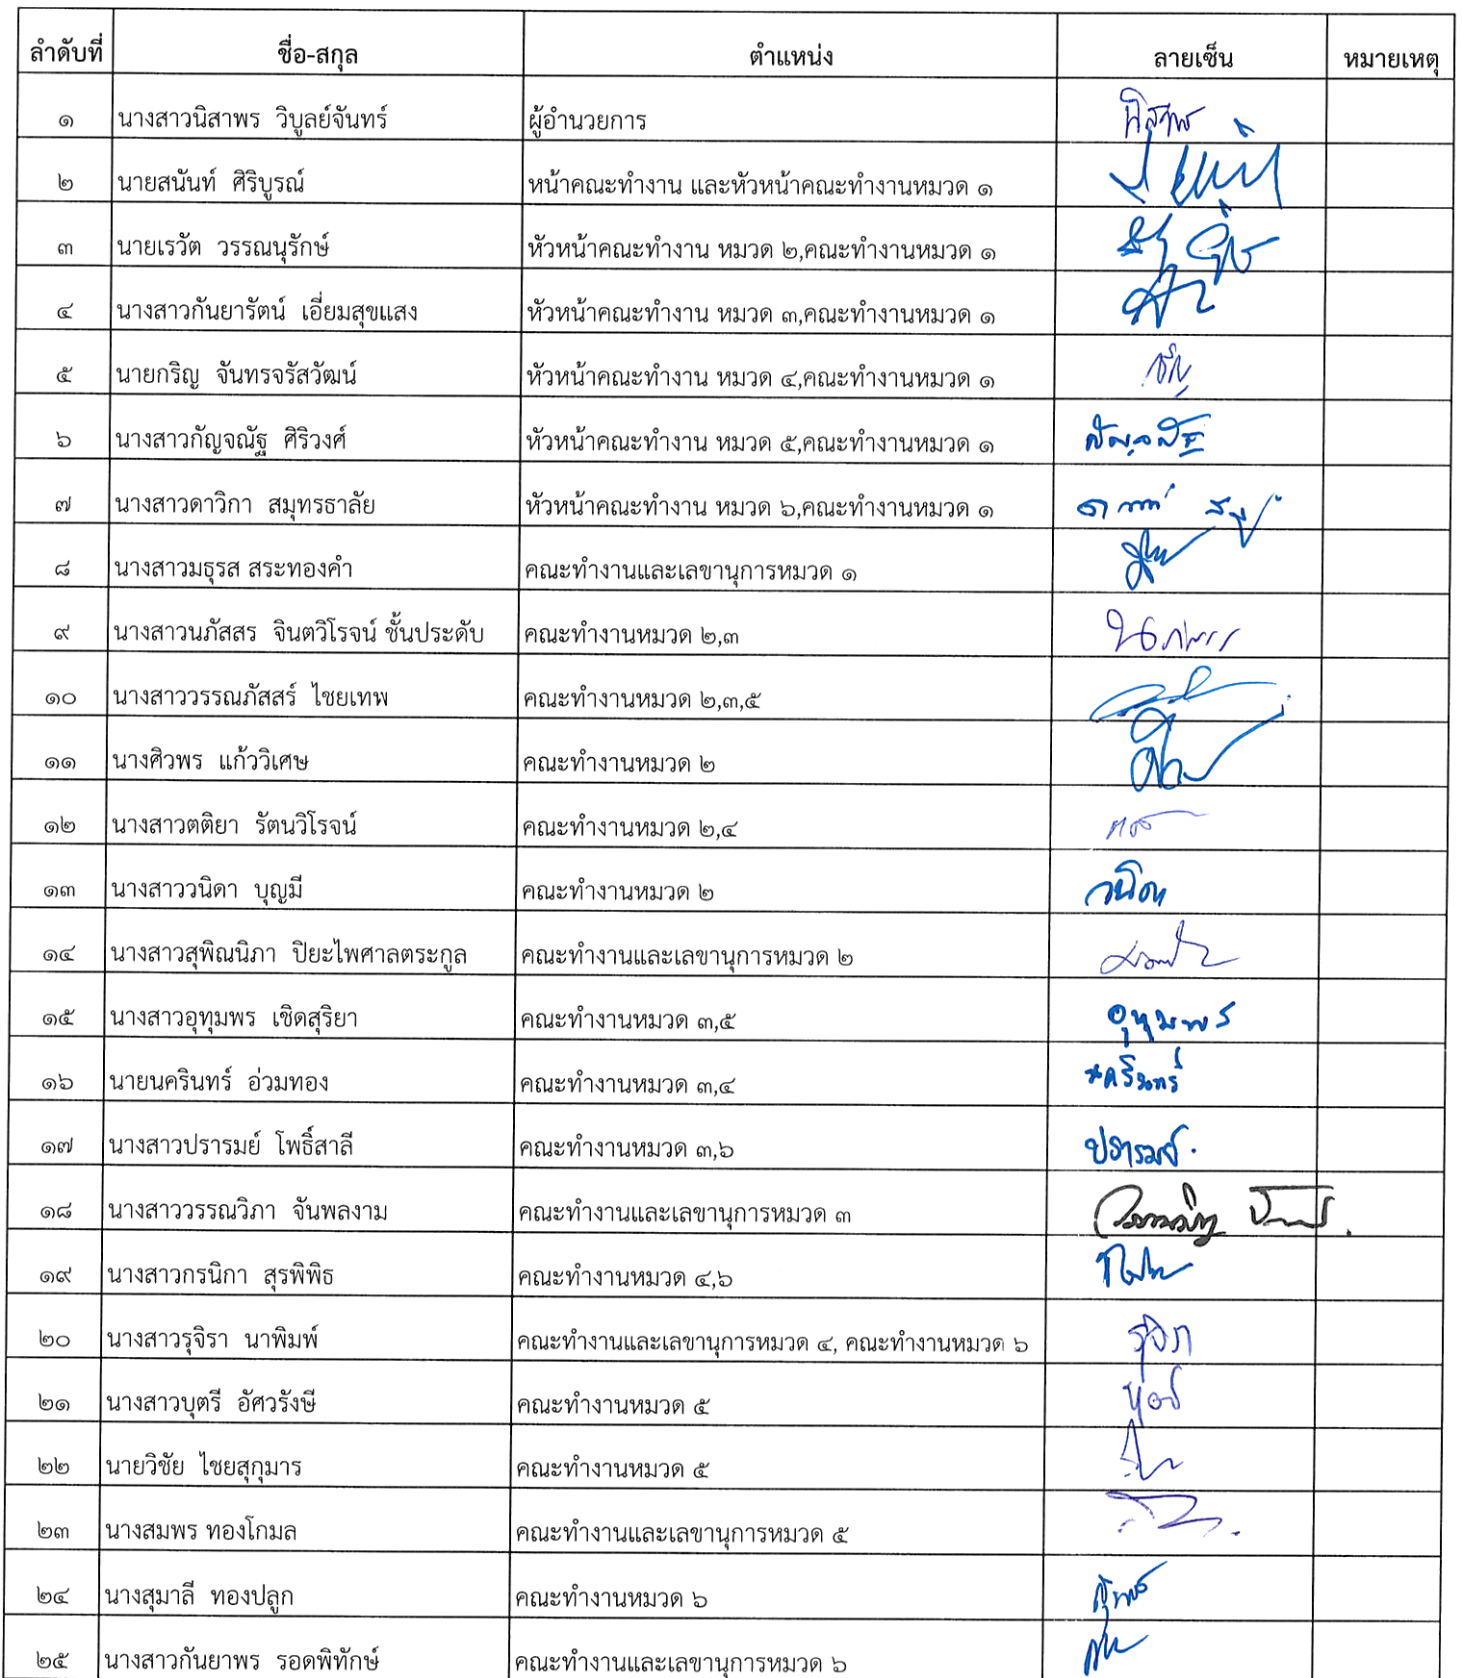 ลำดับที่ ชื่อ-สกุล ตำแหน่ง ลายเซ็น หมายเหตุ
๑ นางสาวนิสาพร วิบูลย์จันทร์ ผู้อำนวยการ นิสาพร
๒ นายสนันท์ ศิริบูรณ์ หน้าคณะทำงาน และหัวหน้าคณะทำงานหมวด ๑
๓ นายเรวัต วรรณนุรักษ์ หัวหน้าคณะทำงาน หมวด ๒,คณะทำงานหมวด ๑
๔ นางสาวกันยารัตน์ เอี่ยมสุขแสง หัวหน้าคณะทำงาน หมวด ๓,คณะทำงานหมวด ๑
๕ นายกริญ จันทรจรัสวัฒน์ หัวหน้าคณะทำงาน หมวด ๔,คณะทำงานหมวด ๑
๖ นางสาวกัญจณัฐ ศิริวงศ์ หัวหน้าคณะทำงาน หมวด ๕,คณะทำงานหมวด ๑ กัญจณัฐ
๗ นางสาวดาวิกา สมุทรธาลัย หัวหน้าคณะทำงาน หมวด ๖,คณะทำงานหมวด ๑
๘ นางสาวมธุรส สระทองคำ คณะทำงานและเลขานุการหมวด ๑
๙ นางสาวนภัสสร จินตวิโรจน์ ชั้นประดับ คณะทำงานหมวด ๒,๓
๑๐ นางสาววรรณภัสสร์ ไชยเทพ คณะทำงานหมวด ๒,๓,๕
๑๑ นางศิวพร แก้ววิเศษ คณะทำงานหมวด ๒
๑๒ นางสาวตติยา รัตนวิโรจน์ คณะทำงานหมวด ๒,๔
๑๓ นางสาววนิดา บุญมี คณะทำงานหมวด ๒ วนิดา
๑๔ นางสาวสุพิณนิภา ปิยะไพศาลตระกูล คณะทำงานและเลขานุการหมวด ๒
๑๕ นางสาวอุทุมพร เชิดสุริยา คณะทำงานหมวด ๓,๕ อุทุมพร
๑๖ นายนครินทร์ อ่วมทอง คณะทำงานหมวด ๓,๔ นครินทร์
๑๗ นางสาวปรารมย์ โพธิ์สาลี คณะทำงานหมวด ๓,๖ ปรารมย์
๑๘ นางสาววรรณวิภา จันพลงาม คณะทำงานและเลขานุการหมวด ๓
๑๙ นางสาวกรนิกา สุรพิพิธ คณะทำงานหมวด ๔,๖
๒๐ นางสาวรุจิรา นาพิมพ์ คณะทำงานและเลขานุการหมวด ๔, คณะทำงานหมวด ๖ รุจิรา
๒๑ นางสาวบุตรี อัศวรังษี คณะทำงานหมวด ๕
๒๒ นายวิชัย ไชยสุกุมาร คณะทำงานหมวด ๕
๒๓ นางสมพร ทองโกมล คณะทำงานและเลขานุการหมวด ๕
๒๔ นางสุมาลี ทองปลูก คณะทำงานหมวด ๖
๒๕ นางสาวกันยาพร รอดพิทักษ์ คณะทำงานและเลขานุการหมวด ๖